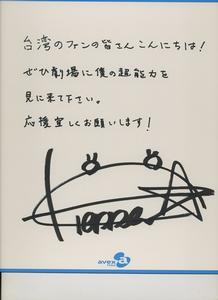 台湾のファンの皆さんこんにちは!
ぜひ劇場に僕の超能力を
見に来て下さい。
応援宜しくお願いします!
avex